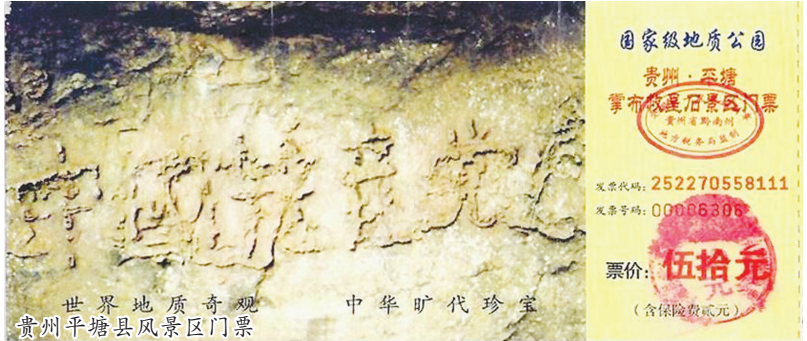 中國共产党亡
世界地质奇观 中华旷代珍宝
贵州平塘县风景区门票
国家级地质公园
贵州·平塘
掌布救星石景区门票
贵州省黔南州
地方税务局监制
发票代码：252270558111
发票号码：00006306
票价：伍拾元
（含保险费贰元）